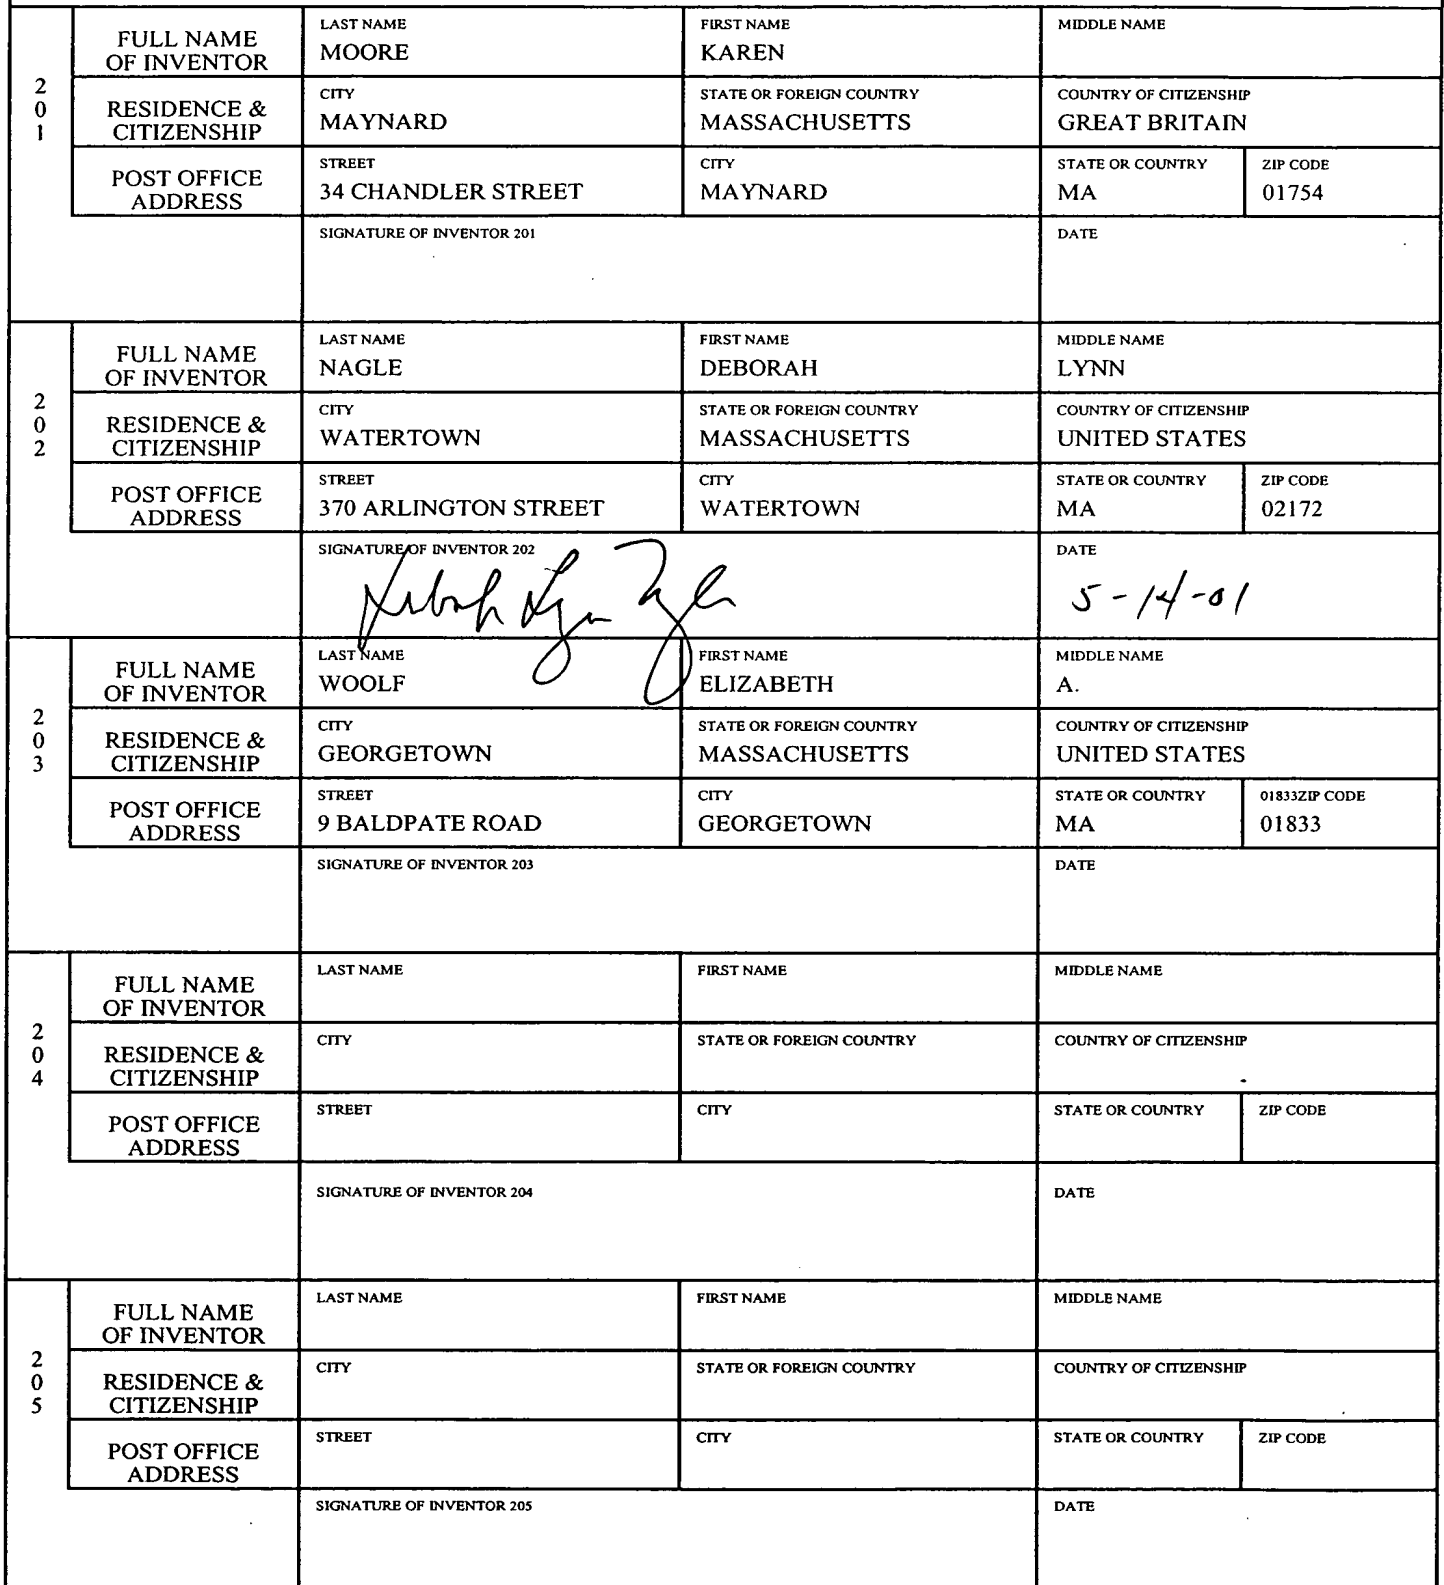 2
0
1
FULL NAME
OF INVENTOR
LAST NAME
MOORE
FIRST NAME
KAREN
MIDDLE NAME
RESIDENCE &
CITIZENSHIP
CITY
MAYNARD
STATE OR FOREIGN COUNTRY
MASSACHUSETTS
COUNTRY OF CITIZENSHIP
GREAT BRITAIN
POST OFFICE
ADDRESS
STREET
34 CHANDLER STREET
CITY
MAYNARD
STATE OR COUNTRY
MA
ZIP CODE
01754
SIGNATURE OF INVENTOR 201
DATE
2
0
2
FULL NAME
OF INVENTOR
LAST NAME
NAGLE
FIRST NAME
DEBORAH
MIDDLE NAME
LYNN
RESIDENCE &
CITIZENSHIP
CITY
WATERTOWN
STATE OR FOREIGN COUNTRY
MASSACHUSETTS
COUNTRY OF CITIZENSHIP
UNITED STATES
POST OFFICE
ADDRESS
STREET
370 ARLINGTON STREET
CITY
WATERTOWN
STATE OR COUNTRY
MA
ZIP CODE
02172
SIGNATURE OF INVENTOR 202
Deborah Lynn Nagle
DATE
5-14-01
2
0
3
FULL NAME
OF INVENTOR
LAST NAME
WOOLF
FIRST NAME
ELIZABETH
MIDDLE NAME
A.
RESIDENCE &
CITIZENSHIP
CITY
GEORGETOWN
STATE OR FOREIGN COUNTRY
MASSACHUSETTS
COUNTRY OF CITIZENSHIP
UNITED STATES
POST OFFICE
ADDRESS
STREET
9 BALDPATE ROAD
CITY
GEORGETOWN
STATE OR COUNTRY
MA
01833ZIP CODE
01833
SIGNATURE OF INVENTOR 203
DATE
2
0
4
FULL NAME
OF INVENTOR
LAST NAME
FIRST NAME
MIDDLE NAME
RESIDENCE &
CITIZENSHIP
CITY
STATE OR FOREIGN COUNTRY
COUNTRY OF CITIZENSHIP
POST OFFICE
ADDRESS
STREET
CITY
STATE OR COUNTRY
ZIP CODE
SIGNATURE OF INVENTOR 204
DATE
2
0
5
FULL NAME
OF INVENTOR
LAST NAME
FIRST NAME
MIDDLE NAME
RESIDENCE &
CITIZENSHIP
CITY
STATE OR FOREIGN COUNTRY
COUNTRY OF CITIZENSHIP
POST OFFICE
ADDRESS
STREET
CITY
STATE OR COUNTRY
ZIP CODE
SIGNATURE OF INVENTOR 205
DATE